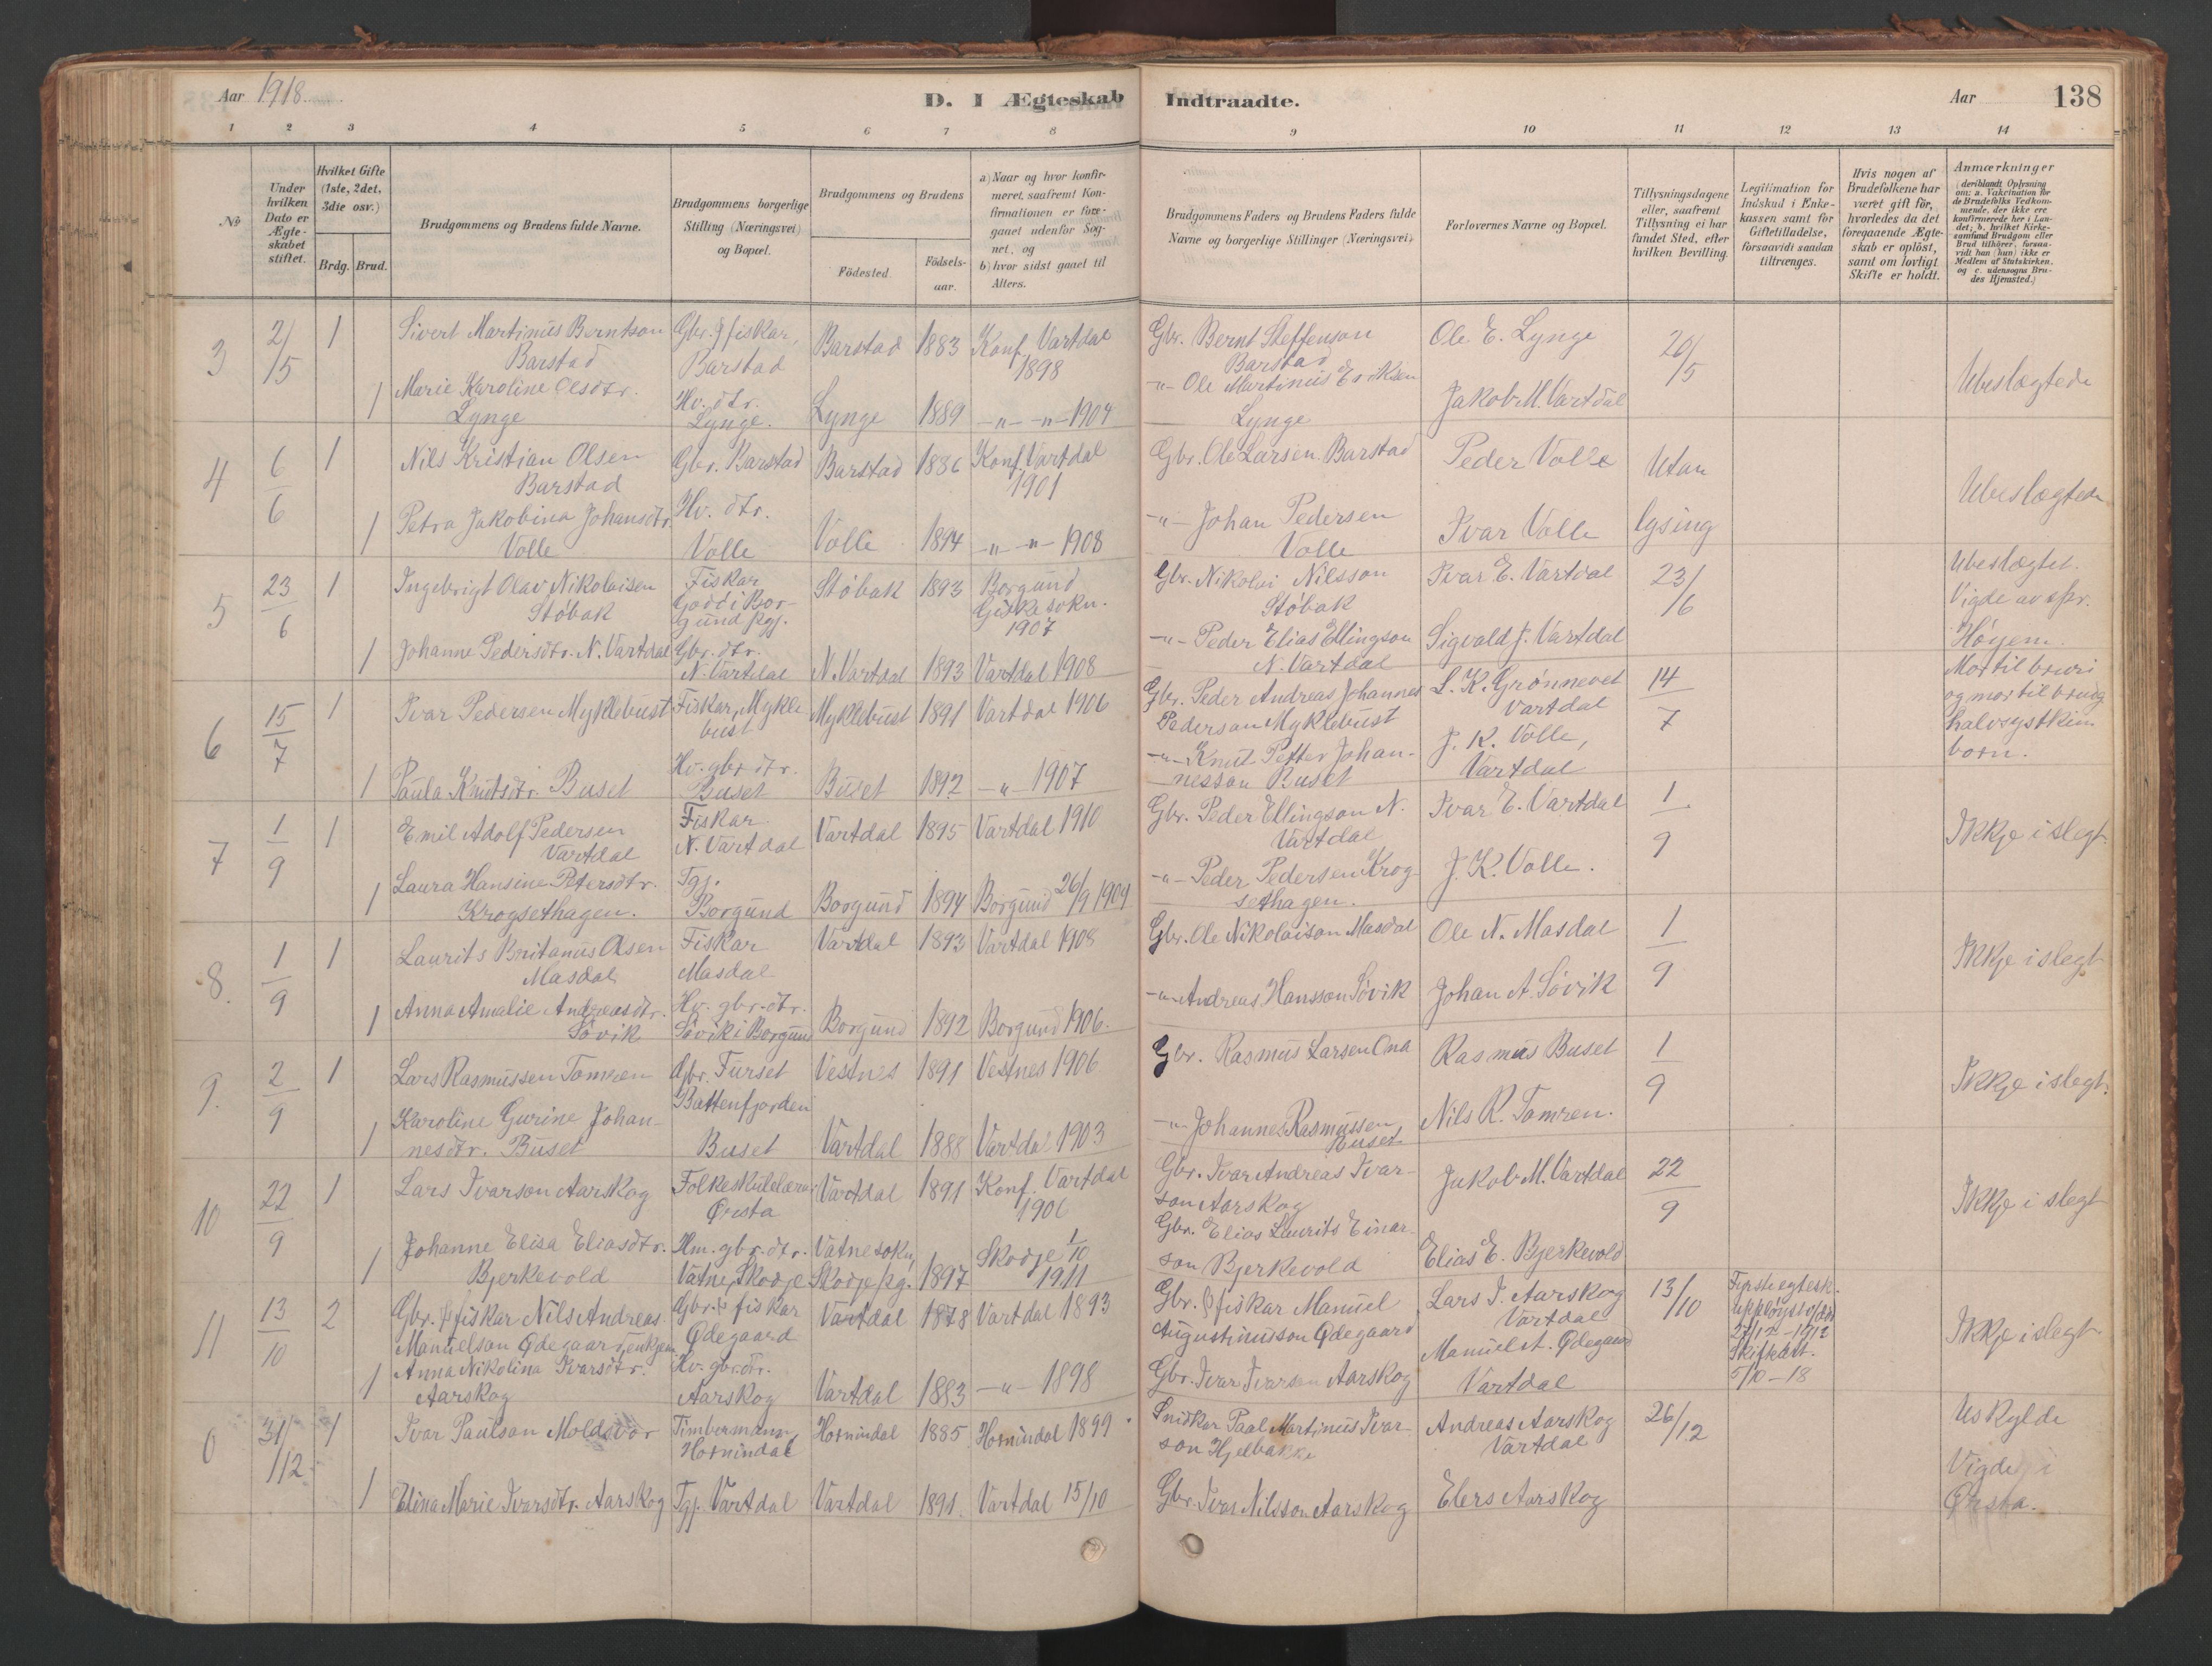 Aar 1918
D. I Ægteskab
Indtraadte.
Aar
138
1 2 3 4 5 6 7 8 9 10 11 12 13 14
No
Under hvilken Dato er Ægteskabet stiftet.
Hvilket Gifte (1ste, 2det, 3die osv.)
Brdg. Brud.
Brudgommens og Brudens fulde Navne.
Brudgommens borgerlige Stilling (Næringsvei) og Bopæl.
Brudgommens og Brudens
Födested.
Födselsaar.
a) Naar og hvor konfirmeret, saafremt Konfirmationen er foregaaet udenfor Sognet, og
b) hvor sidst gaaet til Alters.
Brudgommens Faders og Brudens Faders fulde Navne og borgerlige Stillinger (Næringsvei)
Forlovernes Navne og Bopæl.
Tillysningsdagene eller, saafremt Tillysning ei har fundet Sted, efter hvilken Bevilling.
Legitimation for Indskud i Enkekassen samt for Giftetilladelse, forsaavidt saadan tiltrænges.
Hvis nogen af Brudefolkene har været gift för, hvorledes da det foregaaende Ægteskab er oplöst, samt om lovligt Skifte er holdt.
Anmærkninger
(deriblandt Oplysning om: a. Vakcination for de Brudefolks Vedkommende, der ikke ere konfirmerede her i Landet; b. hvilket Kirkesamfund Brudgom eller Brud tilhörer, forsaavidt han (hun) ikke er Medlem af Statskirken, og c. udensogns Brudes Hjemsted.)
3 2/5 1 Sivert Martinus Berntson Barstad Gbr. & fiskar, Barstad Barstad 1883 Konf. Vartdal 1898 Gbr. Bernt Steffenson Barstad Ole E. Lynge 20/5 Ubeslægtede
1 Marie Karoline Olsdtr. Lynge Hv. dtr. Lynge. Lynge 1889 -"- -"- 1904 -"- Ole Martinus Eriksen Lynge Jakob M. Vartdal
4 6/6 1 Nils Kristian Olsen Barstad Gbr. Barstad Barstad 1886 Konf. Vartdal 1901 Gbr. Ole Larsen Barstad Peder Volle Utan lysing Ubeslægtede
1 Petra Jakobina Johansdtr. Volle Hv. dtr. Volle Volle 1894 -"- -"- 1908 -"- Johan Pedersen Volle Ivar Volle
5 23/6 1 Ingebrigt Olav Nikolaisen Støbak Fiskar Godö i Borgund pgj. Støbak 1893 Borgund Giske sokn. 1907 Gbr. Nikolai Nilsson Støbak Ivar E. Vartdal 23/6 Ubeslægtet. Vigde av spr. Höyem.
1 Johanne Pedersdtr. N. Vartdal Gbr. dtr. N. Vartdal N. Vartdal 1893 Vartdal 1908 -"- Peder Elias Ellingson N. Vartdal Sigvald J. Vartdal
6 15/7 1 Ivar Pedersen Myklebust Fiskar, Myklebust Myklebust 1891 Vartdal 1906 Gbr. Peder Andreas Johannes Pederson Myklebust L. K. Grønnevet Vartdal 14/7 Mor til bruri og mor til brudg halvsystkinborn.
1 Paula Knutsdtr. Buset Hv. gbr. dtr. Buset Buset 1892 -"- 1907 -"- Knut Petter Johannesson Buset J. K. Volle, Vartdal
7 1/9 1 Emil Adolf Pedersen Vartdal Fiskar N. Vartdal Vartdal 1895 Vartdal 1910 Gbr. Peder Ellingson N. Vartdal Ivar E. Vartdal 1/9 Ikkje i slegt.
1 Laura Hansine Petersdtr. Krogsethagen. Tgj. Borgund Borgund 1894 Borgund 26/9 1909 -"- Peder Pedersen Krogsethagen. J. K. Volle.
8. 1/9 1 Laurits Britanus Olsen Masdal Fiskar Masdal Vartdal 1893 Vartdal 1908 Gbr. Ole Nikolaison Masdal Ole N. Masdal 1/9 Ikkje i slegt
1 Anna Amalie Andreasdtr. Søvik Hv. gbr. dtr. Søvik i Borgund Borgund 1892 Borgund 1906. -"- Andreas Hansson Søvik Johan A. Søvik
9. 2/9 1 Lars Rasmussen Tomren Gbr. Furset Battenfjorden Vestnes 1891 Vestnes 1906 Gbr. Rasmus Larsen Ona Rasmus Buset 1/9 Ikkje i slegt.
1 Karoline Gurine Johannesdtr. Buset Buset Vartdal 1888 Vartdal 1903 -"- Johannes Rasmussen Buset Nils R. Tomren.
10 22/9 1 Lars Ivarson Aarskog Folkeskulelærar Ørsta Vartdal 1891 Konf. Vartdal 1906 Gbr. Ivar Andreas Ivarson Aarskog Jakob M. Vartdal 22/9 Ikkje i slegt
1 Johanne Elisa Eliasdtr. Bjerkevold Hm. gbr. dtr. Vatne, Skodje Vatne sokn, Skodje pg. 1897 Skodje 1/10 1911 Gbr. Elias Laurits Einarson Bjerkevold Elias E. Bjerkevold
11 13/10 2 Gbr. & fiskar Nils Andreas Manuelson Ødegaard, enkjem. Gbr. & fiskar Ødegaard Vartdal 1878 Vartdal 1893 Gbr. & fiskar Manuel Augustinusson Ødegaard Lars I. Aarskog Vartdal 13/10 Fyrste egtesk. upployst v/død 27/12-1912 Skifteatt. 5/10-18 Ikkje i slegt
1 Anna Nikolina Ivarsdtr. Aarskog Hv. gbr. dtr. Aarskog Vartdal 1883 -"- 1898 Gbr. Ivar Ivarson Aarskog Manuel A. Ødegaard Vartdal
0 31/12 1 Ivar Paulson Moldsvor Timbermann, Hornindal Hornindal 1885 Hornindal 1899 Snidkar Paal Martinus Ivarson Hjelbakke Andreas Aarskog Vartdal 26/12 Uskylde Vigde i Ørsta.
1 Elina Marie Ivarsdtr. Aarskog Tgj. Vartdal Vartdal 1891. Vartdal 15/10 Gbr. Ivar Nilsson Aarskog Elers Aarskog